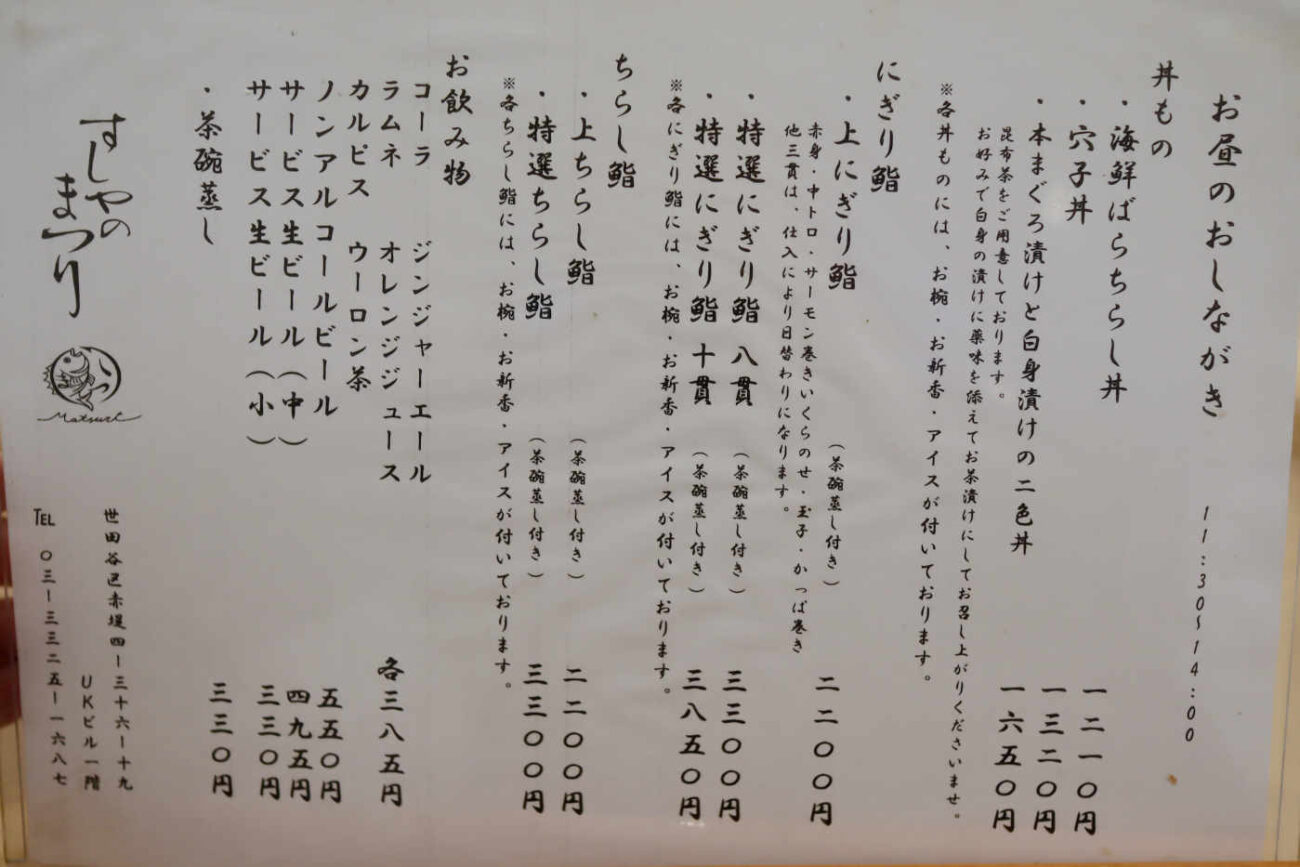 お昼のおしながき　11:30～14:00
丼もの
・海鮮ばらちらし丼　一二一〇円
・穴子丼　一三二〇円
・本まぐろ漬けと白身漬けの二色丼　一六五〇円
昆布茶をご用意しております。
お好みで白身の漬けに薬味を添えてお茶漬けにしてお召し上がりくださいませ。
※各丼ものには、お椀・お新香・アイスが付いております。
にぎり鮨
・上にぎり鮨（茶碗蒸し付き）　二二〇〇円
赤身・中トロ・サーモン巻きいくらのせ・玉子・かっぱ巻き
他三貫は、仕入により日替わりになります。
・特選にぎり鮨 八貫（茶碗蒸し付き）　三三〇〇円
・特選にぎり鮨 十貫（茶碗蒸し付き）　三八五〇円
※各にぎり鮨には、お椀・お新香・アイスが付いております。
ちらし鮨
・上ちらし鮨（茶碗蒸し付き）　二二〇〇円
・特選ちらし鮨（茶碗蒸し付き）　三三〇〇円
※各ちらし鮨には、お椀・お新香・アイスが付いております。
お飲み物
コーラ　ジンジャーエール
ラムネ　オレンジジュース　各三八五円
カルピス　ウーロン茶
ノンアルコールビール　五五〇円
サービス生ビール（中）　四九五円
サービス生ビール（小）　三三〇円
・茶碗蒸し　三三〇円
すしやの
まつり
Matsuri
世田谷区赤堤四ー三十六ー十九
UKビル一階
TEL 〇三ー三三二五ー一六八七